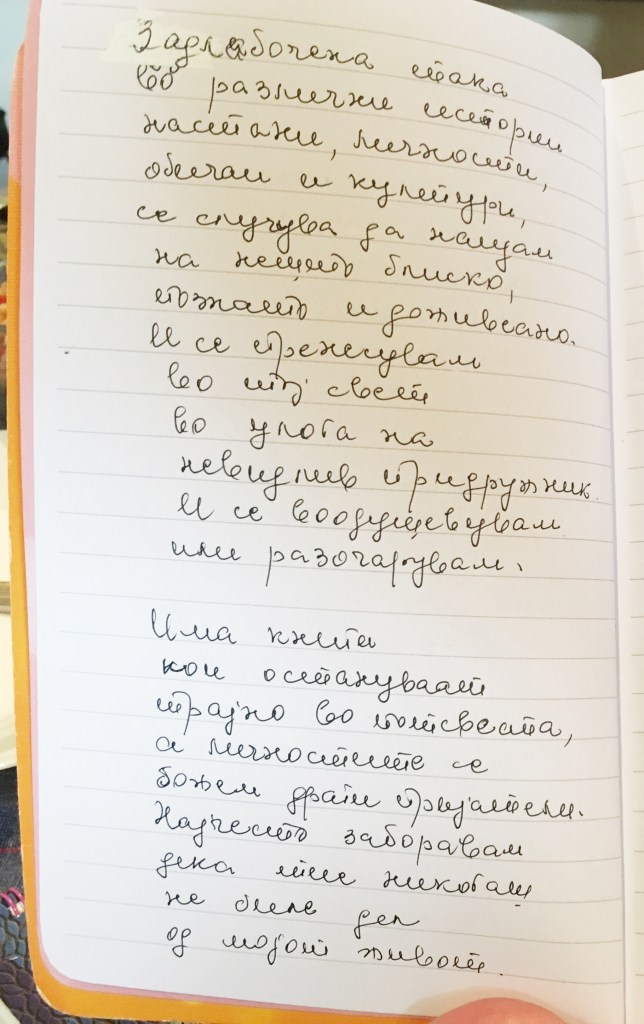 Задлабочена така
во различни истории
настани, личности,
обичаи и култури,
се случува да налетам
на нешто блиско,
познато и доживеано.
И се пренесувам
во тој свет
во улога на
невидлив придружник
И се воодушевувам
или разочарувам.
Има книги
кои остануваат
трајно во потсвеста,
а личностите се
божем драги пријатели.
Најчесто заборавам
дека тие никогаш
не биле дел
од мојот живот.